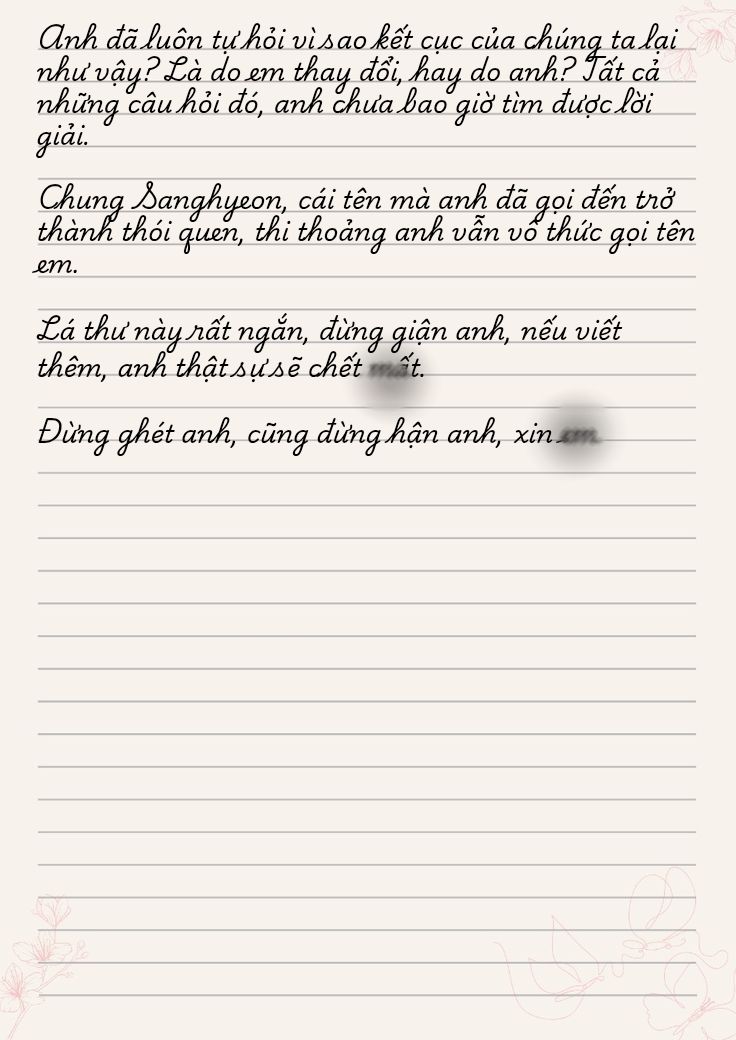 Anh đã luôn tự hỏi vì sao kết cục của chúng ta lại
như vậy? Là do em thay đổi, hay do anh? Tất cả
những câu hỏi đó, anh chưa bao giờ tìm được lời
giải.
Chung Sanghyeon, cái tên mà anh đã gọi đến trở
thành thói quen, thi thoảng anh vẫn vô thức gọi tên
em.
Lá thư này rất ngắn, đừng giận anh, nếu viết
thêm, anh thật sự sẽ chết mất.
Đừng ghét anh, cũng đừng hận anh, xin em.